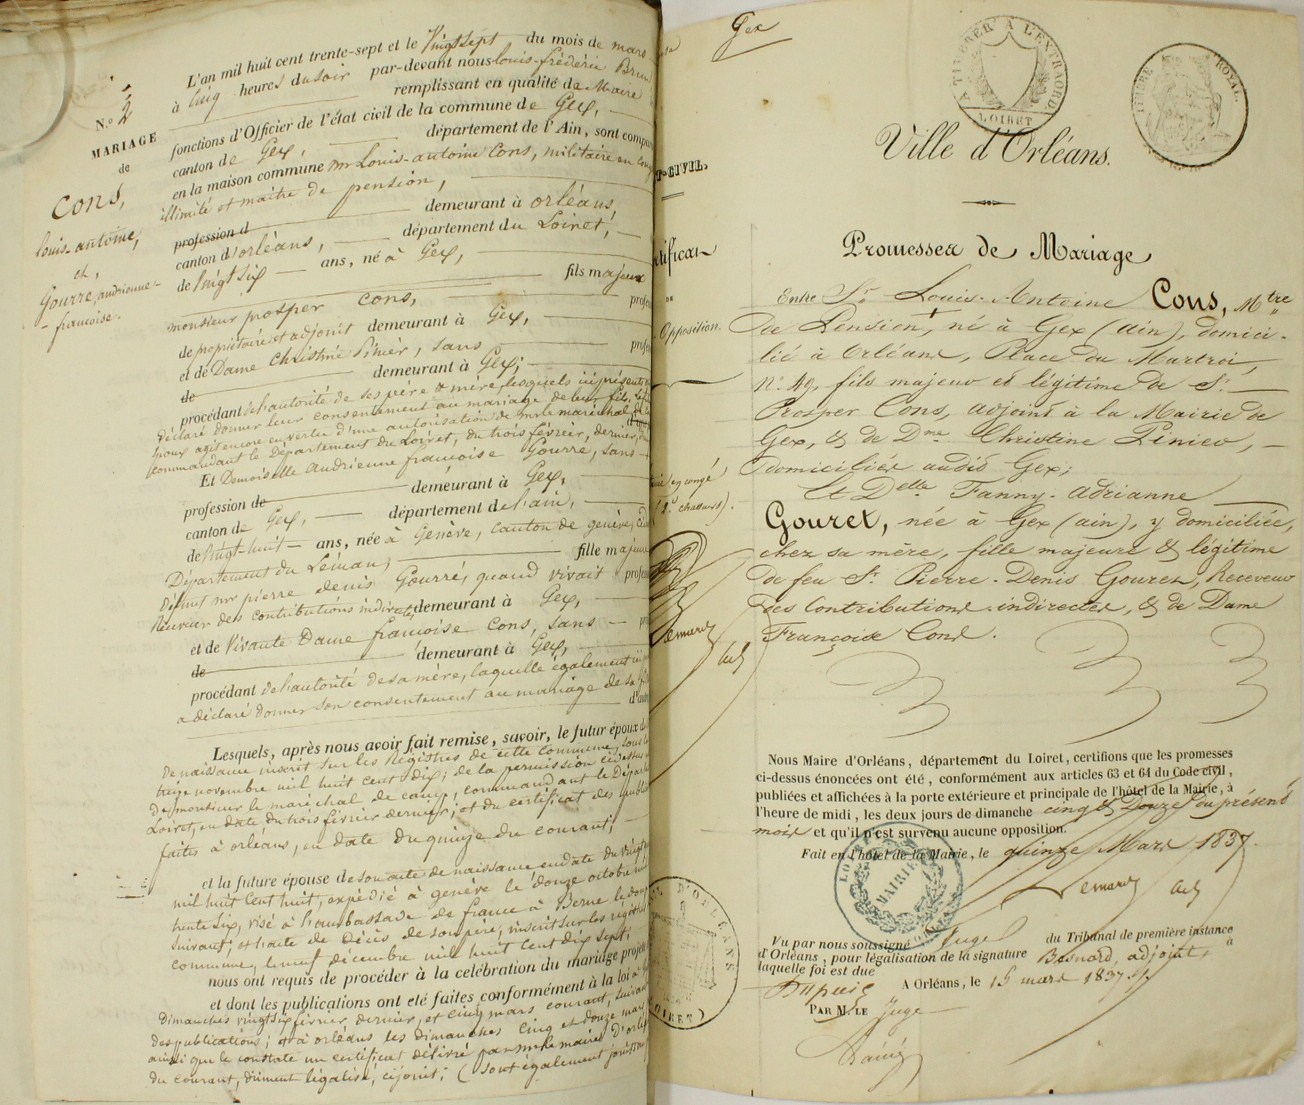 N.o 2
MARIAGE
de
Cons,
louis-antoine,
et,
Gourre, andrienne-
-françoise.
L'an mil huit cent trente-sept et le Vingt sept du mois de mars
à Cinq heures du soir par-devant nous louis-frédéric Brun
remplissant en qualité de Maire
fonctions d'Officier de l'état civil de la commune de Gex,
canton de Gex, département de l'Ain, sont compa
en la maison commune mr Louis-antoine Cons, militaire en Congé
illimité et maitre de pension,
profession d demeurant à orléans,
canton d'orléans, département du Loiret,
de Vingt six ans, né à Gex,
fils majeur
monsieur prosper Cons, profes
de propriétaire et adjoint demeurant à Gex,
et de Dame Christine Pinier, sans profes
de demeurant à Gex;
procédant de l'autorité de ses père & mère, lesquels ici présents
déclaré donner leur consentement au mariage de leur fils, le
époux agit encore en vertu d'une autorisation de mr le maréchal de
commandant le Département du Loiret, du trois février, dernier,
Et Demoiselle andrienne françoise Gourre, sans
profession de demeurant à Gex,
canton de Gex, département de l'ain,
de Vingt-huit ans, née à Genève, Canton de genève,
Département du Léman, fille majeure
défunt mr pierre denis Gourré, quand vivait profes
Receveur des contributions indirectes demeurant à Gex,
et de Vivante Dame françoise Cons, sans
de demeurant à Gex,
procédant de l'autorité de sa mère, laquelle également ici
a déclaré donner son consentement au mariage de sa fille
d'autre
Lesquels, après nous avoir fait remise, savoir, le futur époux de
de naissance inscrit sur les Registres de cette Commune, sous le
treize novembre mil huit Cent dix; de la permission ci dessus
de monsieur le maréchal de camp, commandant le Départ
Loiret, en date du trois février dernier; et du certificat des publi
faites à orléans, en date du quinze du courant;
et la future épouse de son acte de naissance en date du Vingt
mil huit Cent huit, expédié à genève le douze octobre mil
trente six, visé à l'ambassade de france à Berne le douze
suivant; et l'acte de décès de son père, inscrit sur les registres
commune, le neuf décembre mil huit Cent dix sept;
nous ont requis de procéder à la célébration du mariage projeté
et dont les publications ont été faites conformément à la loi
dimanches vingt six février dernier, et cinq mars courant, suivant
des publications; et à orléans les dimanches Cinq et douze mars
ainsi que le constate un certificat délivré par mr le maire d'orléans
du courant, dûment légalisé, ci joint; (sont également joints
T-CIVIL.
rtificat
DE
Opposition.
Gex
A TIMBRER A L'EXTRAORD.
LOIRET
TIMBRE ROYAL.
Ville d'Orléans.
Promesses de Mariage
Entre Sr. Louis-Antoine Cons, Mtre
de Pension, né à Gex (ain), domici-
lié à Orléans, Place du Martroi,
No. 49, fils majeur et légitime de Sr.
Prosper Cons, adjoint à la Mairie de
Gex, & de Dme Christine Pinier,
domiciliés audit Gex;
Et Delle Fanny-Adrianne
Gouret, née à Gex (ain), y domiciliée,
chez sa mère, fille majeure & légitime
de feu Sr. Pierre-Denis Gouret, Receveur
des Contributions indirectes, & de Dame
Françoise Cons.
Nous Maire d'Orléans, département du Loiret, certifions que les promesses
ci-dessus énoncées ont été, conformément aux articles 63 et 64 du Code civil,
publiées et affichées à la porte extérieure et principale de l'hôtel de la Mairie, à
l'heure de midi, les deux jours de dimanche cinq & Douze du présent
mois et qu'il n'est survenu aucune opposition.
Fait en l'hôtel de la Mairie, le quinze Mars 1837.
MAIRIE
Vu par nous soussigné Juge du Tribunal de première instance
d'Orléans, pour légalisation de la signature Besnard, adjoint, à
laquelle foi est due
A Orléans, le 15 mars 1837.
PAR M. LE Juge